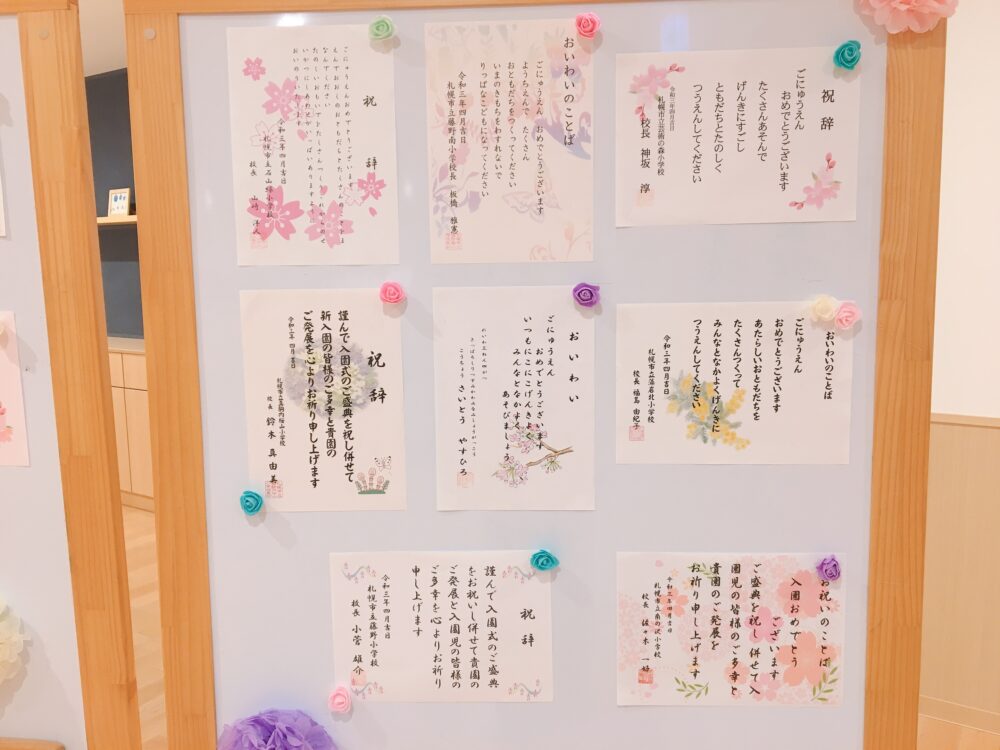 祝辞
ごにゅうえんおめでとうございます
おいわいのことば
ごにゅうえん おめでとうございます
ようちえんで たくさん
おともだちをつくってください
いまのきもちをわすれないで
りっぱなこどもになってください
令和三年四月吉日
札幌市立藤野南小学校長 板橋 雅憲
祝辞
ごにゅうえん
おめでとうございます
たくさんあそんで
げんきにすごし
ともだちとたのしく
つうえんしてください
令和三年四月吉日
札幌市立芸術の森小学校
校長 神坂 淳
祝辞
謹んで入園式のご盛典を祝し併せて
新入園の皆様のご多幸と貴園の
ご発展を心よりお祈り申し上げます
令和三年 四月吉日
札幌市立真駒内桜山小学校
校長 鈴木 真由美
おいわい
ごにゅうえん
おめでとうございます
いつもにこにこげんきよく
みんなとなかよく
あそびましょう
こうちょう さいとう やすひろ
おいわいのことば
ごにゅうえん
おめでとうございます
あたらしいおともだちを
たくさんつくって
みんなとなかよくげんきに
つうえんしてください
令和三年四月吉日
札幌市立藻岩北小学校
校長 福島 由紀子
祝辞
謹んで入園式のご盛典
をお祝いし併せて貴園の
ご発展と入園児の皆様の
ご多幸を心よりお祈り
申し上げます
令和三年四月吉日
札幌市立藤野小学校
校長 小菅 雄介
お祝いのことば
入園おめでとう
ございます
ご盛典を祝し 併せて入
園児の皆様のご多幸と
貴園のご発展を
お祈り申し上げます
令和三年四月吉日
札幌市立南の沢小学校
校長 佐々木 一好